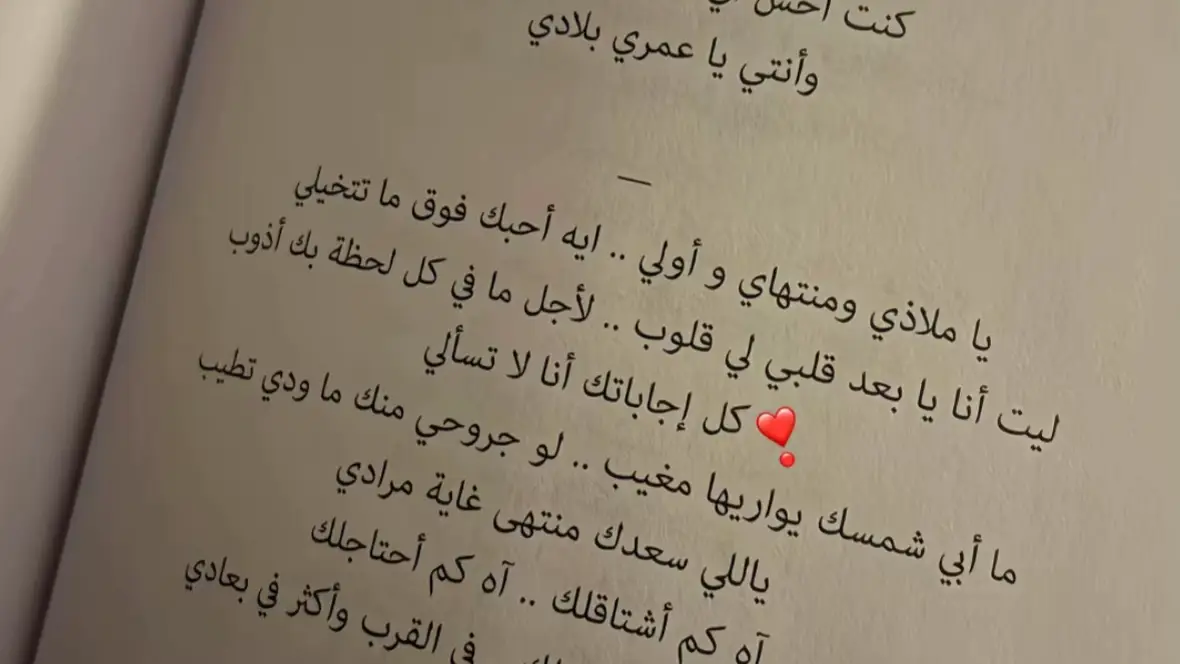 كنت أحس
وأنتي يا عمري بلادي
—
يا ملاذي ومنتهاي و أولي .. ايه أحبك فوق ما تتخيلي
ليت أنا يا بعد قلبي لي قلوب .. لأجل ما في كل لحظة بك أذوب
كل إجاباتك أنا لا تسألي
ما أبي شمسك يواريها مغيب .. لو جروحي منك ما ودي تطيب
ياللي سعدك منتهى غاية مرادي
آه كم أشتاقلك .. آه كم أحتاجلك
في القرب وأكثر في بعادي